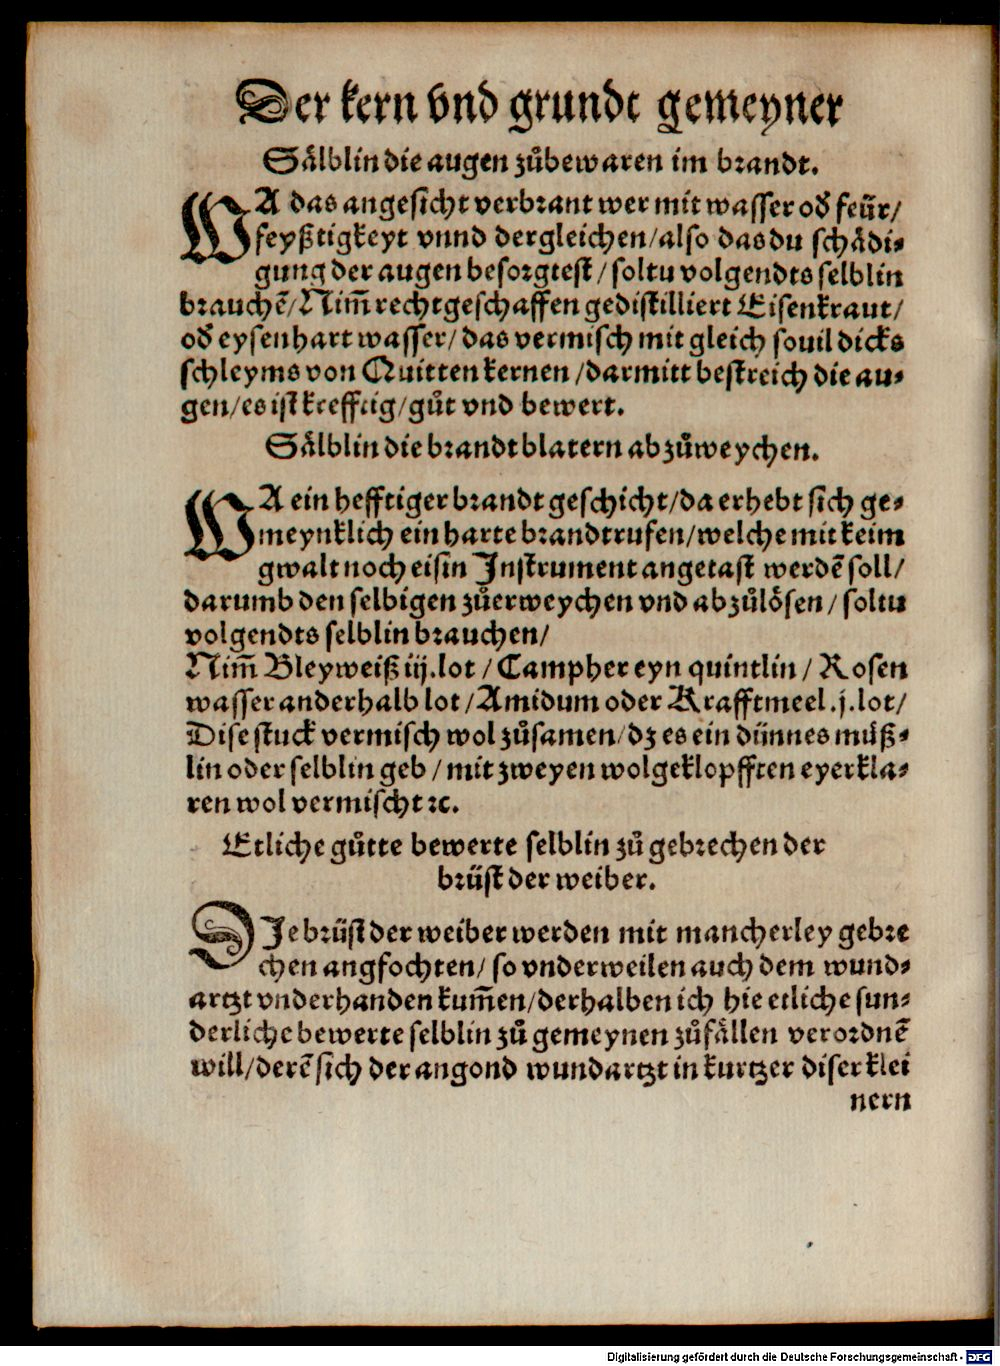 Der kern vnd grundt gemeyner
Sålblin die augen zůbewaren im brandt.
WA das angesicht verbrant wer mit wasser od̕ feür/
feyßtigkeyt vnnd dergleichen/also das du schådi⸗
gung der augen besorgtest/soltu volgendts selblin
brauchē/Nim̄ rechtgeschaffen gedistilliert Eisenkraut/
od̕ eysenhart wasser/das vermisch mit gleich souil dicks
schleyms von Quitten kernen/darmitt bestreich die au⸗
gen/es ist krefftig/gůt vnd bewert.
Sålblin die brandtblatern abzůweychen.
WA ein hefftiger brandt geschicht/da erhebt sich ge⸗
meynklich ein harte brandtrufen/welche mit keim
gwalt noch eisin Instrument angetast werdē soll/
darumb den selbigen zůerweychen vnd abzůlösen/soltu
volgendts selblin brauchen/
Nim̄ Bleyweiß iij.lot/Campher eyn quintlin/Rosen
wasser anderhalb lot/Amidum oder Krafftmeel .j.lot/
Dise stuck vermisch wol zůsamen/dz es ein dünnes můß⸗
lin oder selblin geb/mit zweyen wolgeklopfften eyerkla⸗
ren wol vermischt ꝛc.
Etliche gůtte bewerte selblin zů gebrechen der
brüst der weiber.
DJe brüst der weiber werden mit mancherley gebre
chen angfochten/so vnderweilen auch dem wund⸗
artzt vnderhanden kum̄en/derhalben ich hie etliche sun⸗
derliche bewerte selblin zů gemeynen zůfållen verordnē
will/derē sich der angond wundartzt in kurtzer diser klei
nern
Digitalisierung gefördert durch die Deutsche Forschungsgemeinschaft - DFG